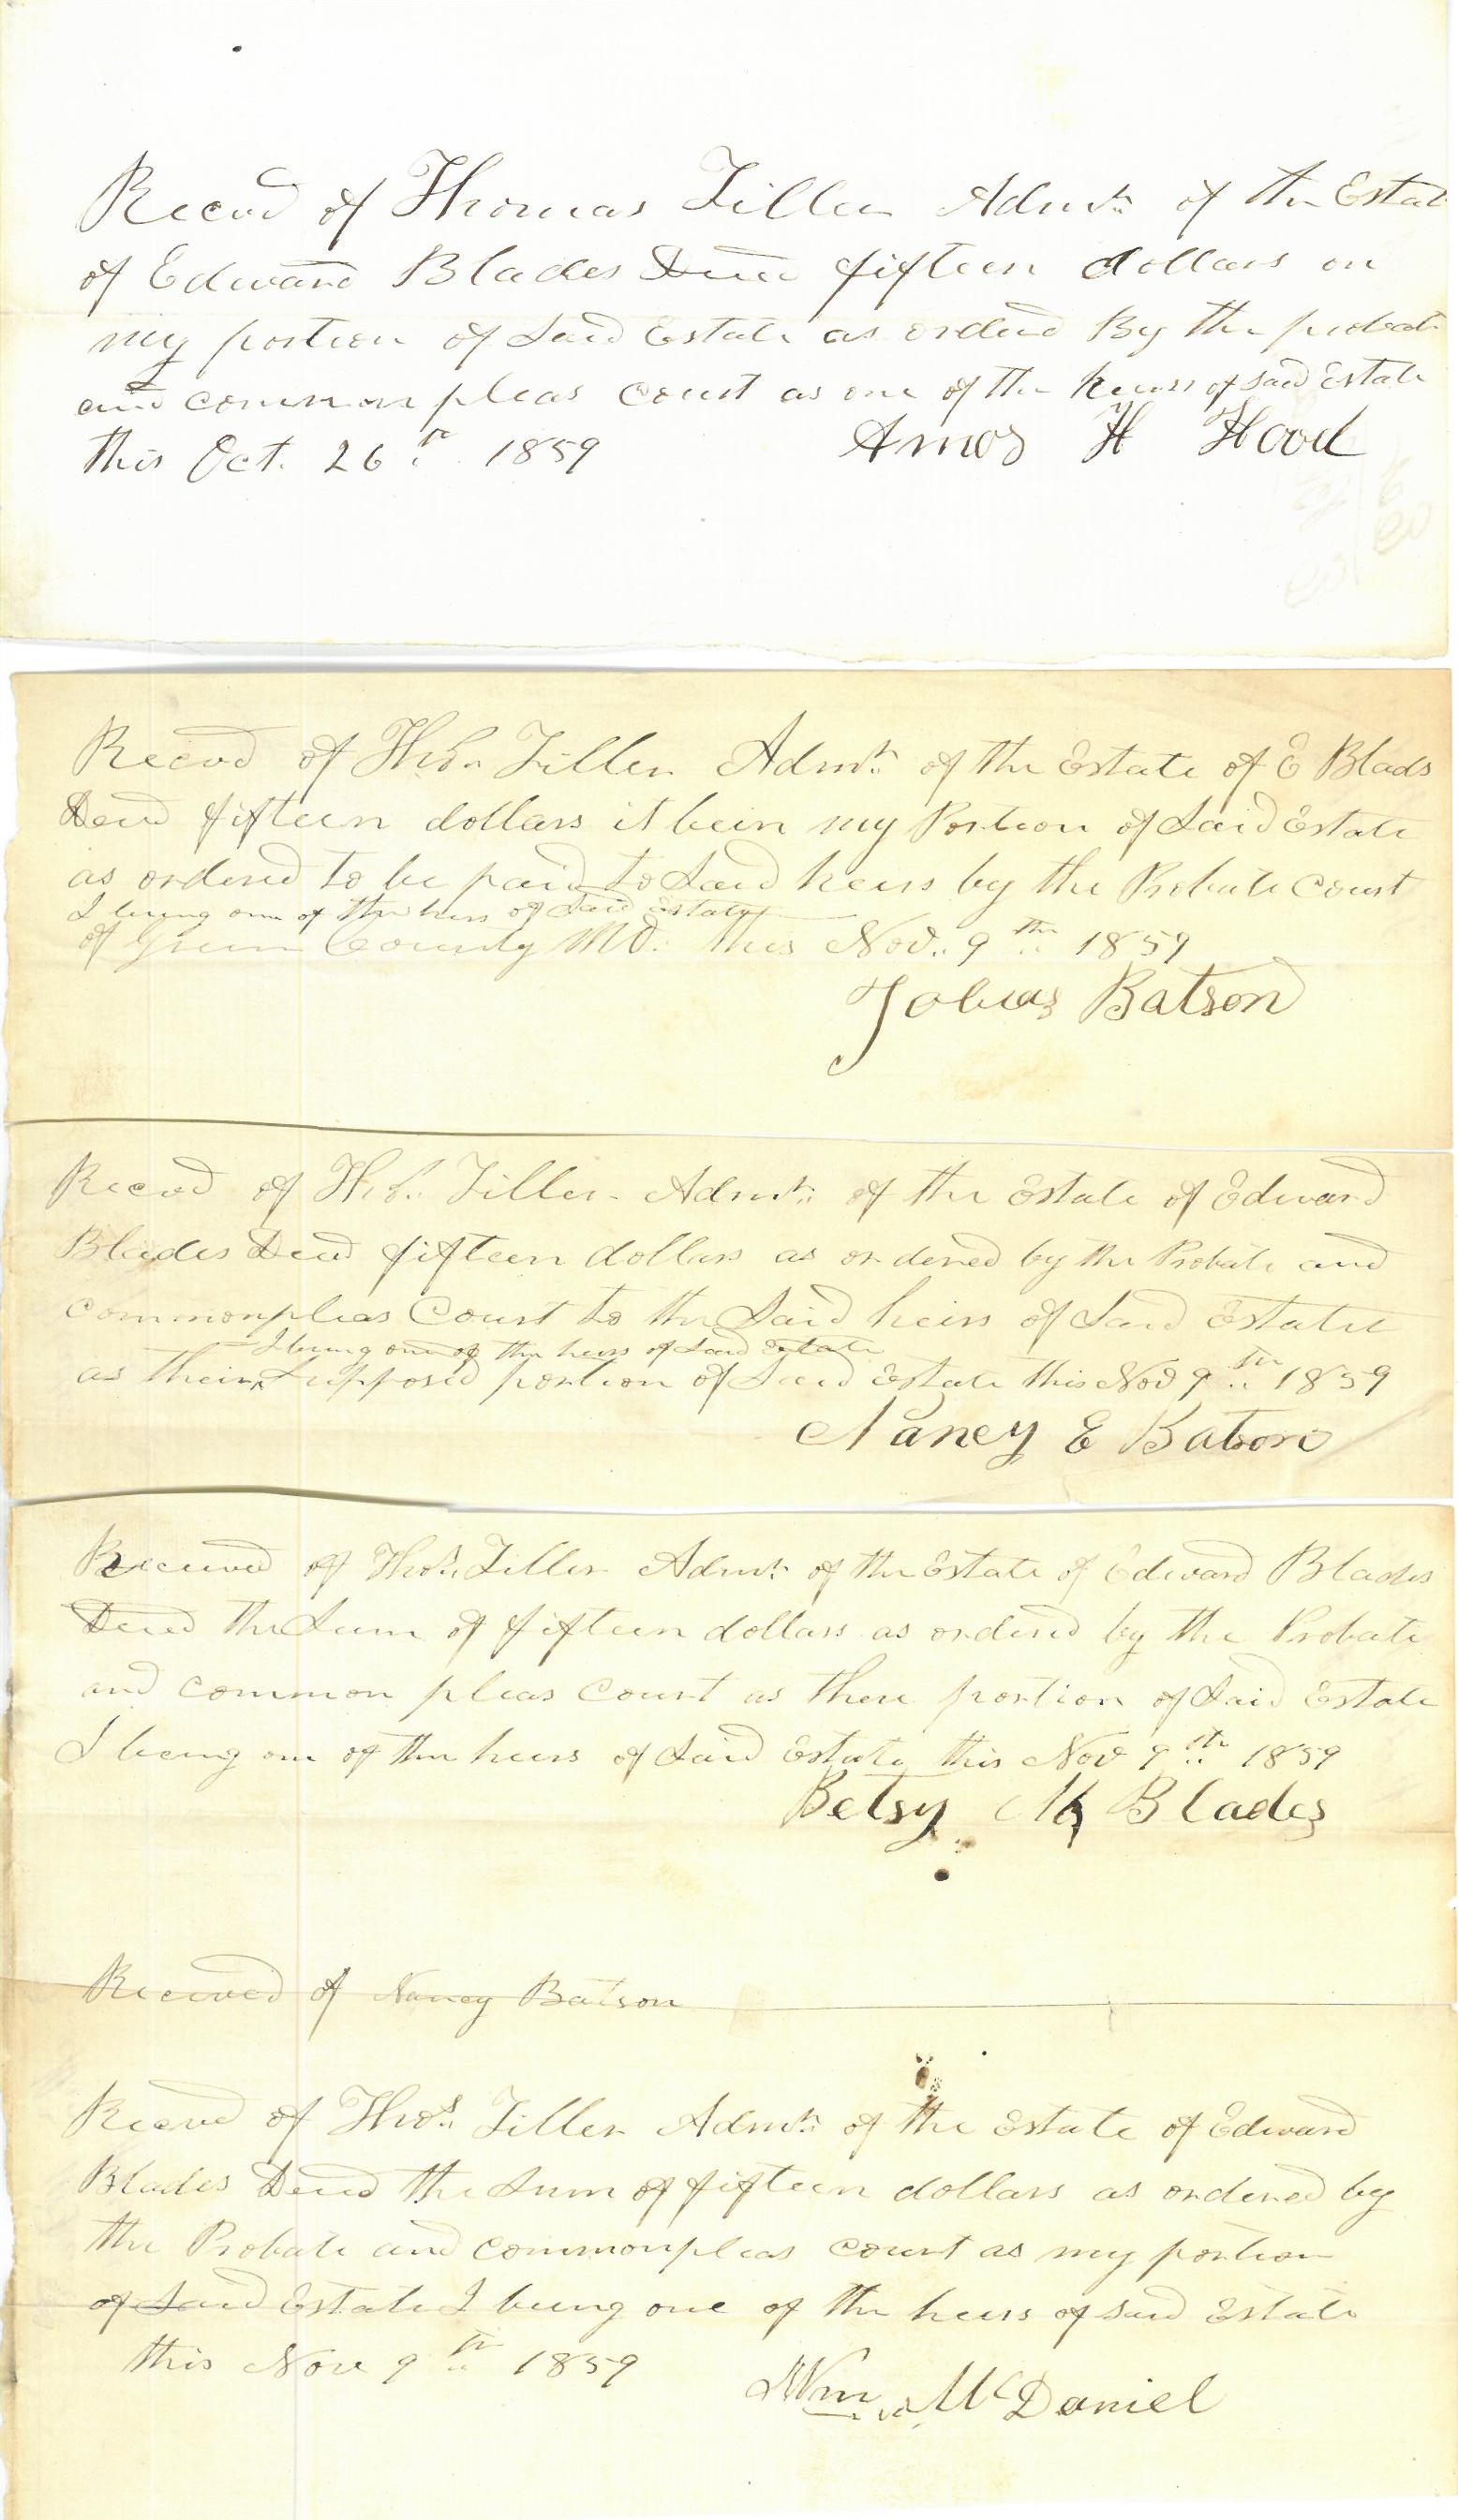 Reced of Thomas Tiller Admr. of the Estat
of Edward Blades Decd fifteen dollars on
my portion of Said Estate as ordered By the probate
and common pleas Court as one of the heirs of said Estate
this Oct. 26th 1859 Amos H Hood
Recevd of Thos. Tiller Admr. of the Estate of E Blads
Decd fifteen dollars it bein my Portion of Said Estate
as ordered to be paid to Said heirs by the Probate Court
I being one of the heirs of Said Estate
of Green County MO. this Nov. 9th 1859
Tobias Batson
Recevd of Thos. Tiller Admr. of the Estate of Edward
Blades Decd fifteen dollars as ordered by the Probate and
commonpleas Court to the Said heirs of Said Estate
I being one of the heirs of Said Estate
as their Supposed portion of Said Estate this Nov 9th 1859
Nancy E Batson
Received of Thos. Tiller Admr. of the Estate of Edward Blades
Deced the Sum of fifteen dollars as ordered by the Probate
and common pleas Court as there portion of Said Estate
I being one of the heirs of Said Estate this Nov 9th 1859
Betsy M Blades
Received of Nancy Batson
Recevd of Thos. Tiller Admr. of the Estate of Edward
Blades Deced the Sum of fifteen dollars as ordered by
the Probate and commonpleas court as my portion
of Said Estate I being one of the heirs of said Estate
this Nov 9th 1859
Wm McDaniel